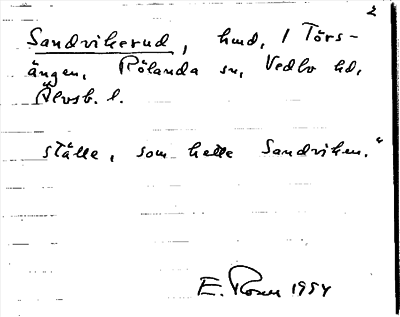 2
Sandvikerud, hmd, / Törs-
ängen, Rölanda sn, Vedbo hd,
Älvsb. l.
ställe, som hette Sandviken."
E. Rosen 1954